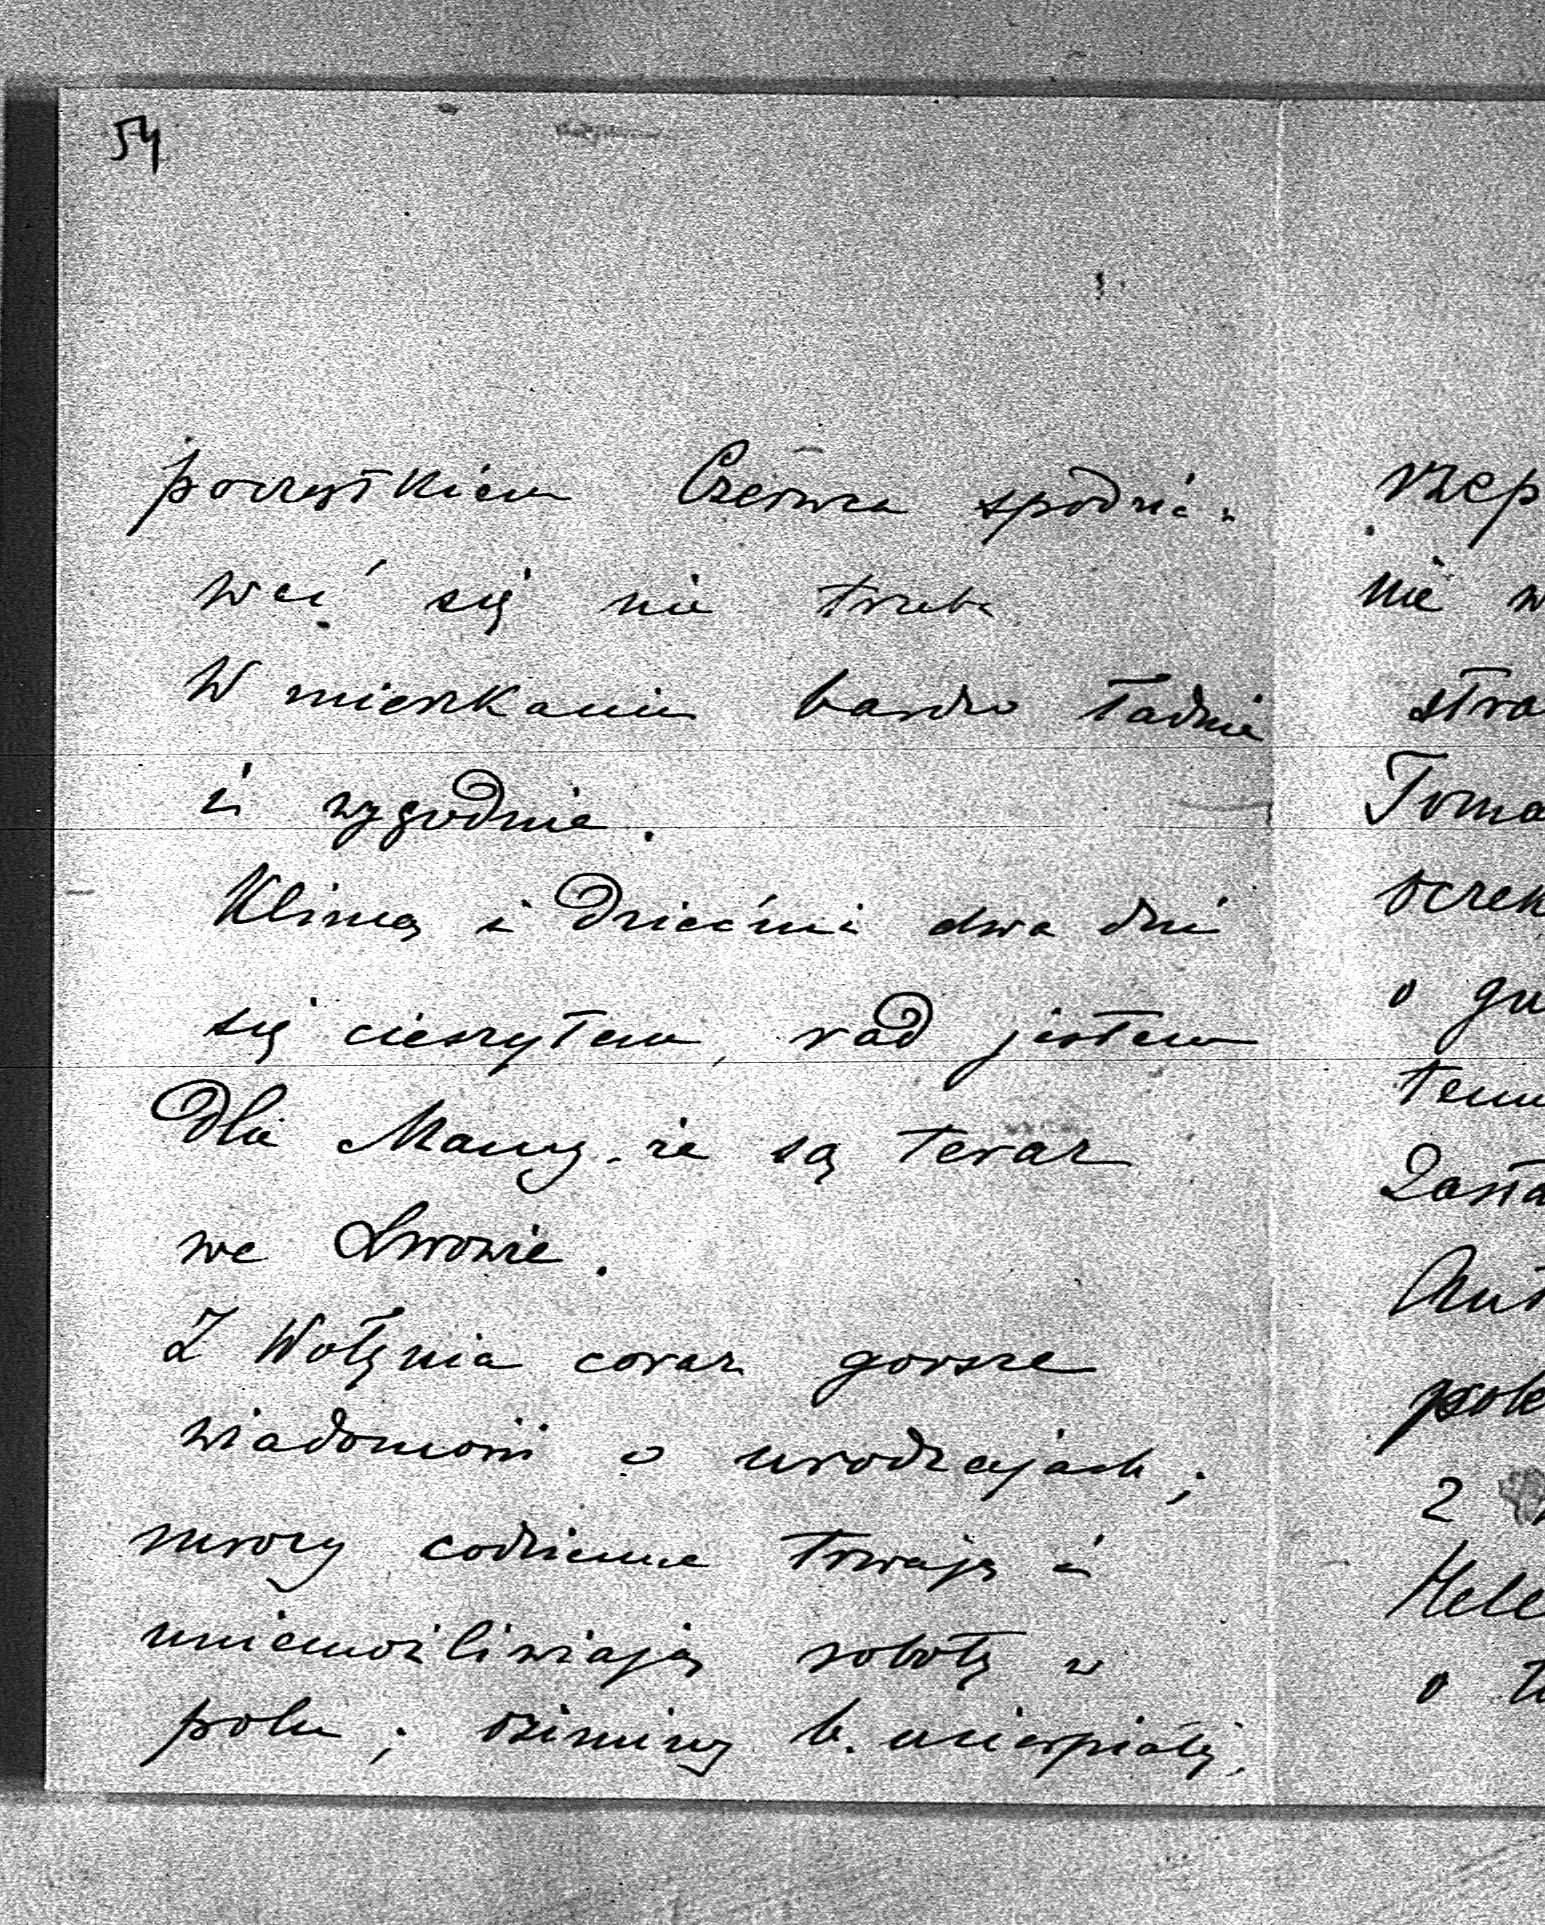 54
początkiem Czerwca spodzie-
wać się nie trzeba
W mieszkaniu bardzo ładnie
i wygodnie.
Klimcą i Dziećmi dwa dni
się cieszyłem, rad jestem
dla Mamy, że są teraz
we Lwowie.
Z Wołynia coraz gorsze
wiadomości o urodzajach;
mrozy codzienne trwają i
uniemożliwiają robotę w
polu; oziminy b. ucierpiały,
rzep
nie w
stra
Toma
oczek
o gu
temu
Zasta
2
Hele
o